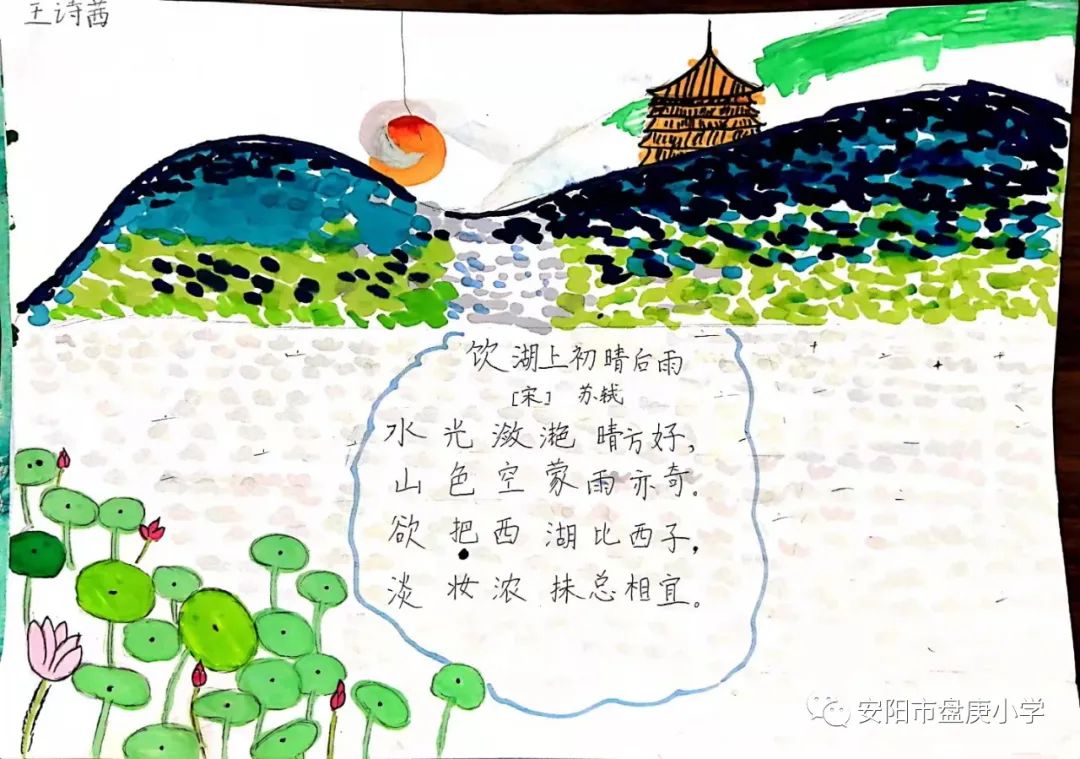 王诗茜
饮湖上初晴后雨
[宋] 苏轼
水光潋滟晴方好，
山色空蒙雨亦奇。
欲把西湖比西子，
淡妆浓抹总相宜。
安阳市盘庚小学